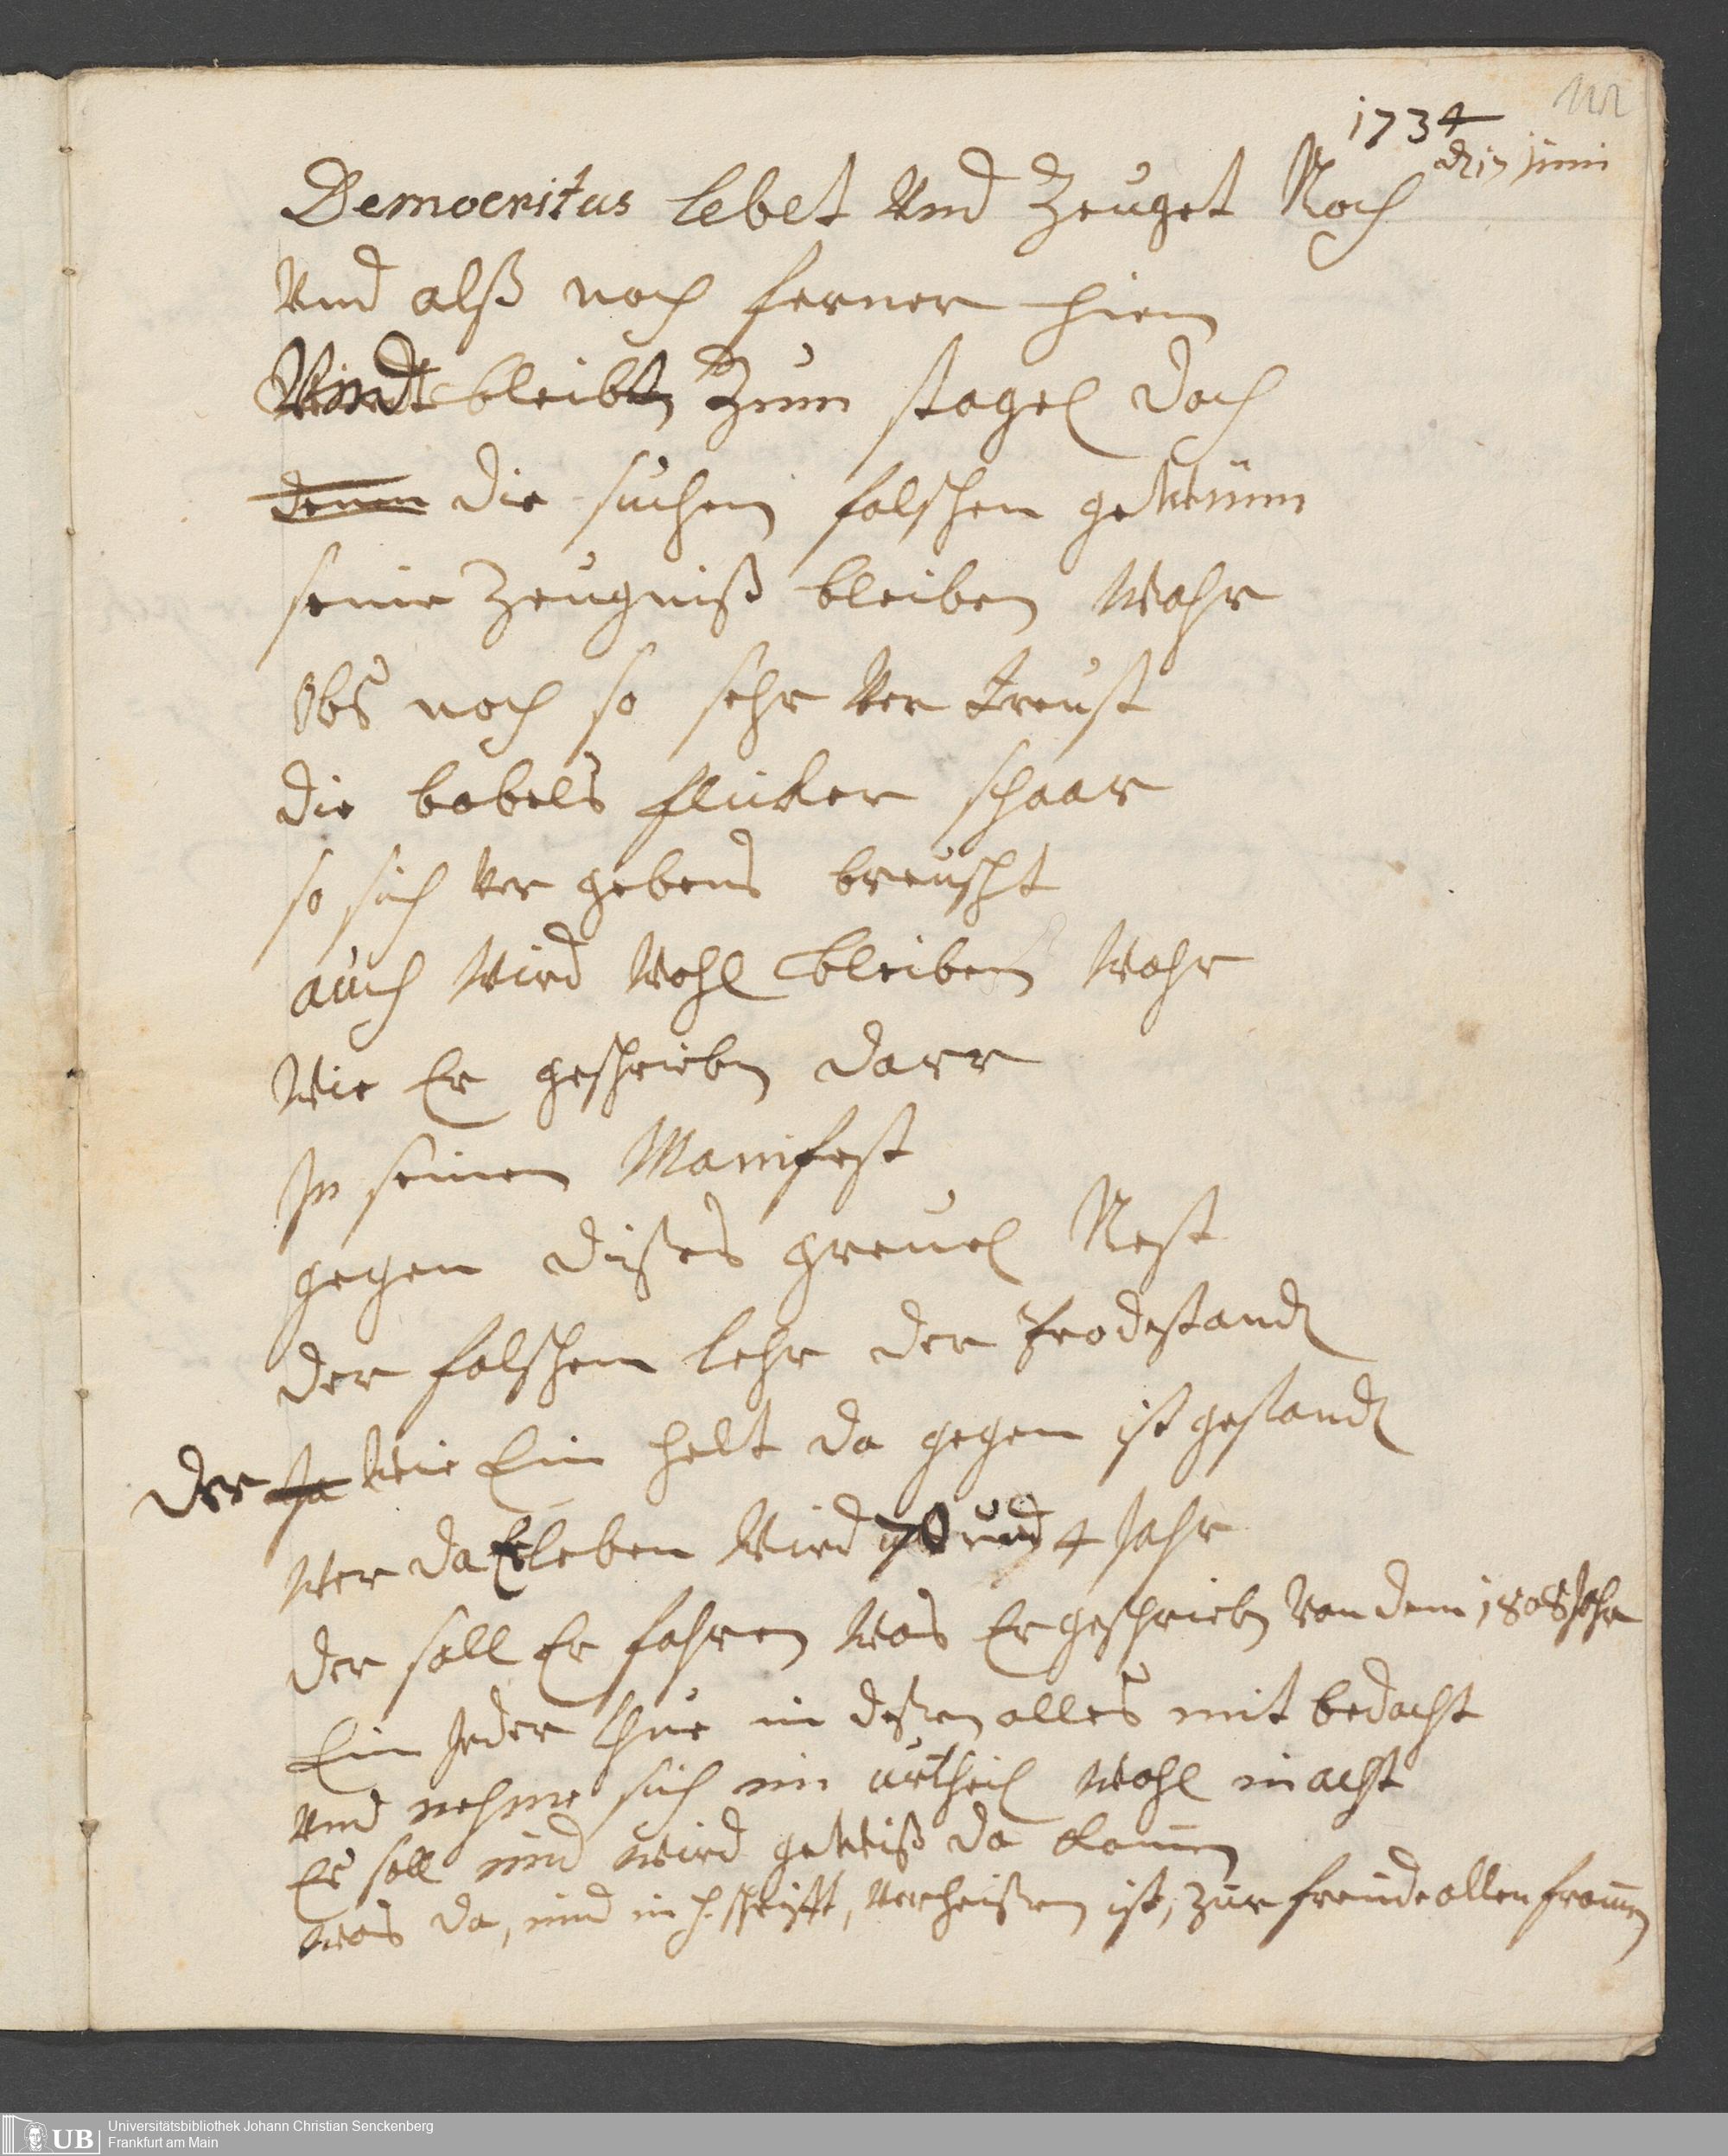 1734
d 17 Juni
Democritus lebet Und Zeuget Noch
Und alß noch ferner hien
Undt bleibt Zum stagel doch
denen die suchen falschen gewinn
seine Zeugniß bleiben Wahr
Obs noch so sehr Ver Dreust
die babels flicker schaar
so sich Ver gebens breuscht
auch Wird Wohl bleiben Wahr
Wie Er geschrieben darr
In seinen Manifest
gegen dißes greuel Nest
der falschen lehr der
der Ja Wie Ein helt da gegen ist gestand
Wer da Erleben Wird 70 und 4 Jahr
der soll Er fahren Was Er geschrieben Von dem 1808 Jahr
Ein Jeder thue in deßen alles mit bedacht
Und nehme sich im urtheil Wohl in acht
Es soll und wird gewiß da komen
was da, und in h. schrifft, verheißen ist, zur freude allen fromen
Universitätsbibliothek Johann Christian Senckenberg
Frankfurt am Main
UB